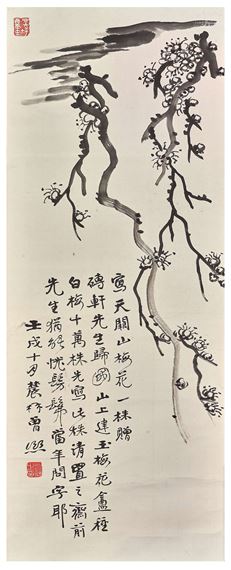 寫天開山梅花一株贈
磚軒先生歸國山上建玉梅花盦種
白梅十萬株先寫此株請置之齋前
先生猶能恍髣髴當年問字耶
壬戌十月農髯曾熙